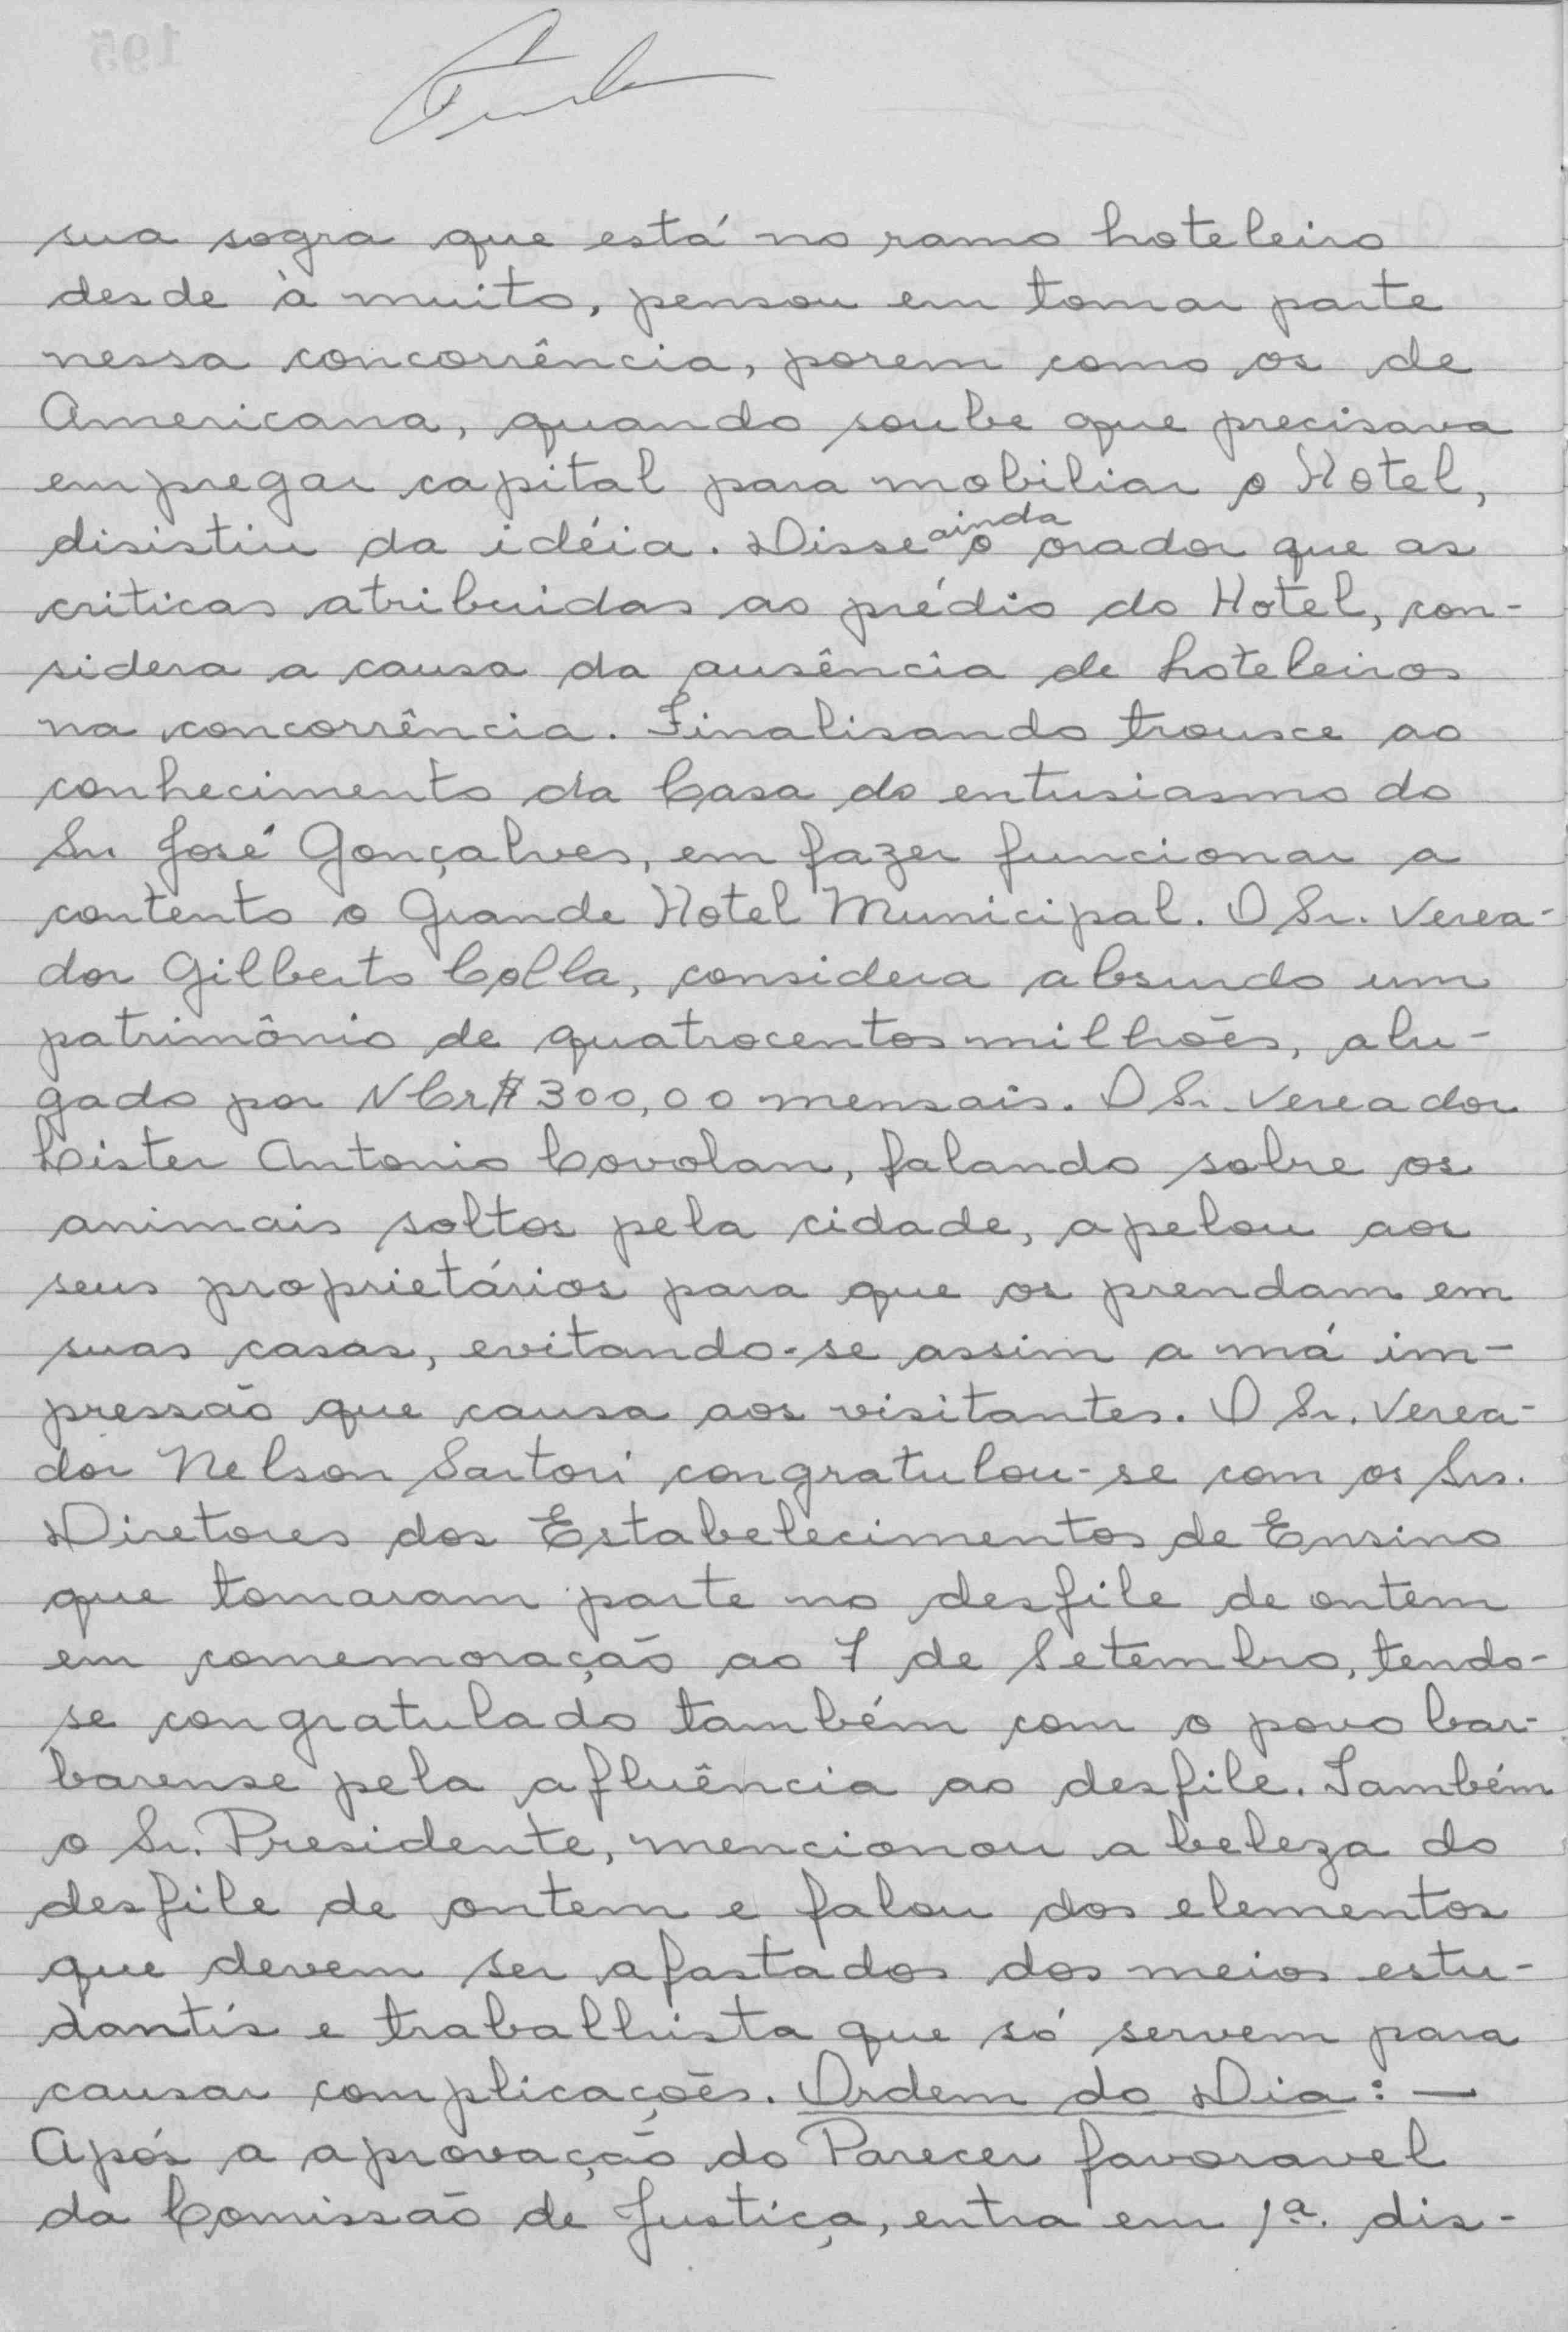 sua sogra que está no ramo hoteleiro
desde à muito, pensou em tomar parte
nessa concorrência, porem como os de
Americana, quando soube que precisava
empregar capital para mobiliar o Hotel,
disistiu da idéia. Disse ainda o orador que as
criticas atribuidas ao prédio do Hotel, con-
sidera a causa da ausência de hoteleiros
na concorrência. Finalisando trousce ao
conhecimento da Casa do entusiasmo do
Sr. José Gonçalves, em fazer funcionar a
contento o Grande Hotel Municipal. O Sr. Verea-
dor Gilberto Colla, considera absurdo um
patrimônio de quatrocentos milhões, alu-
gado por NCr$ 300,00 mensais. O Sr. Vereador
Cister Antonio Covolan, falando sobre os
animais soltos pela cidade, apelou aos
seus proprietários para que os prendam em
suas casas, evitando-se assim a má im-
pressão que causa aos visitantes. O Sr. Verea-
dor Nelson Sartori congratulou-se com os Srs.
Diretores dos Estabelecimentos de Ensino
que tomaram parte no desfile de ontem
em comemoração ao 7 de Setembro, tendo-
se congratulado também com o povo bar-
barense pela afluência ao desfile. Também
o Sr. Presidente, mencionou a beleza do
desfile de ontem e falou dos elementos
que devem ser afastados dos meios estu-
dantís e trabalhista que só servem para
causar complicações. Ordem do Dia: —
Após a aprovação do Parecer favoravel
da Comissão de Justiça, entra em 1ª. dis-